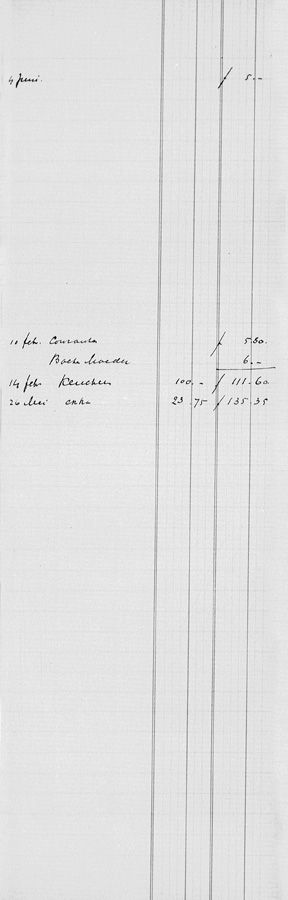 4 Juni. ƒ 5.-
10 feb. Couranten ƒ 5.60.
Boek Moeder 6.-
14 feb. 100.- ƒ 111.60
26 Mei 23.75 ƒ 135.35